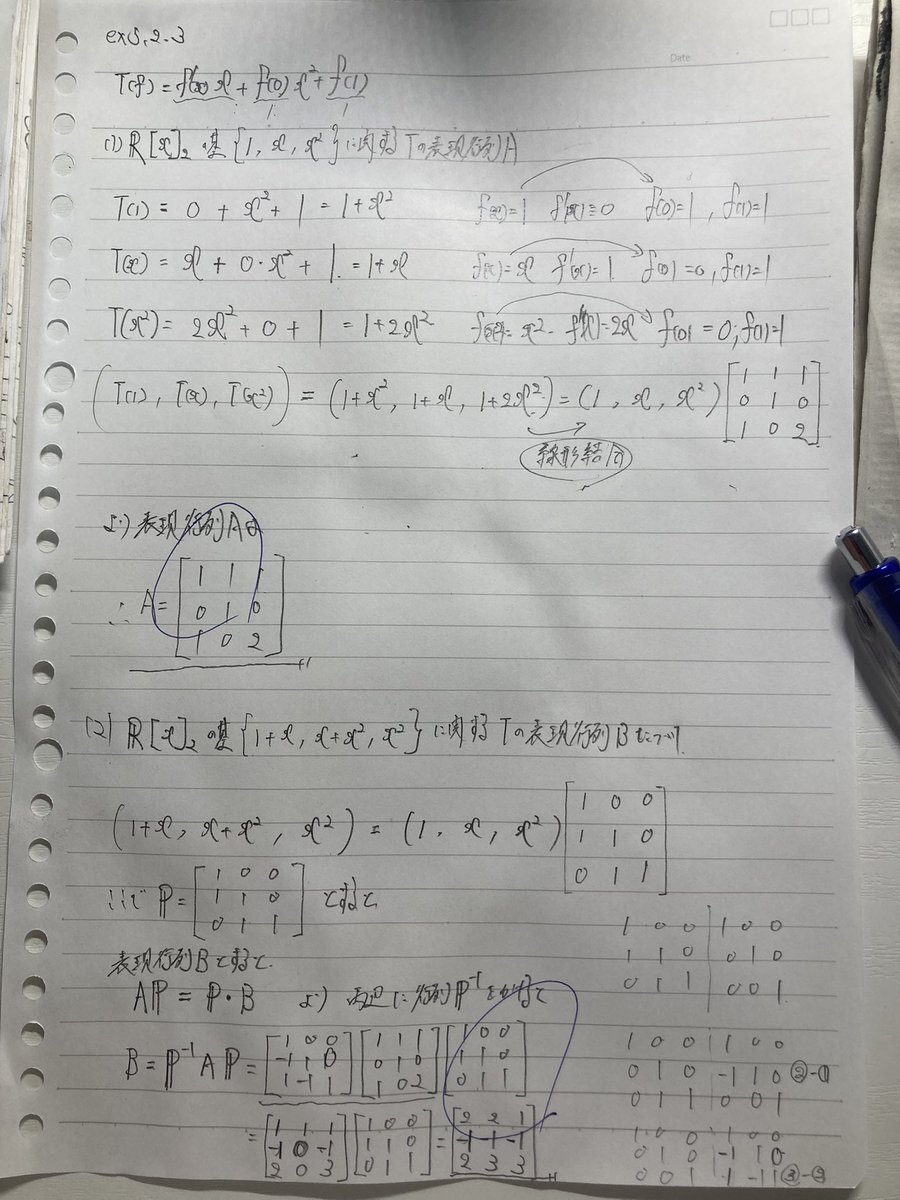 ex5.2.3
Date
T(f) = f'(x)x + f(0)x² + f(1)
(1) ℝ[x]₂ の基{1, x, x²}に関するTの表現行列A
T(1) = 0 + x² + 1 = 1+x² f(x)=1 f'(x)≡0 f(0)=1, f(1)=1
T(x) = x + 0·x² + 1 = 1+x f(x)=x f'(x)=1 f(0)=0, f(1)=1
T(x²) = 2x² + 0 + 1 = 1+2x² f(x)=x² f'(x)=2x f(0)=0, f(1)=1
(T(1), T(x), T(x²)) = (1+x², 1+x, 1+2x²) = (1, x, x²) [1 1 1
0 1 0
1 0 2]
線形結合
より表現行列Aは
∴ A = [1 1
0 1 0
1 0 2]
(2) ℝ[x]₂ の基{1+x, x+x², x²}に関するTの表現行列Bについて
(1+x, x+x², x²) = (1, x, x²) [1 0 0
1 1 0
0 1 1]
ここで ℙ = [1 0 0
1 1 0
0 1 1] とすると
表現行列Bとすると
Aℙ = ℙ·B より 両辺に行列ℙ⁻¹をかけて
B = ℙ⁻¹Aℙ = [1 0 0
-1 1 0
1 -1 1] [1 1 1
0 1 0
1 0 2] [1 0 0
1 1 0
0 1 1]
= [1 1 1
-1 0 -1
2 0 3] [1 0 0
1 1 0
0 1 1] = [2 2 1
-1 -1 -1
2 3 3]
1 0 0 | 1 0 0
1 1 0 | 0 1 0
0 1 1 | 0 0 1
1 0 0 | 1 0 0
0 1 0 | -1 1 0 ②-①
0 1 1 | 0 0 1
1 0 0 | 1 0 0
0 1 0 | -1 1 0
0 0 1 | 1 -1 1 ③-②